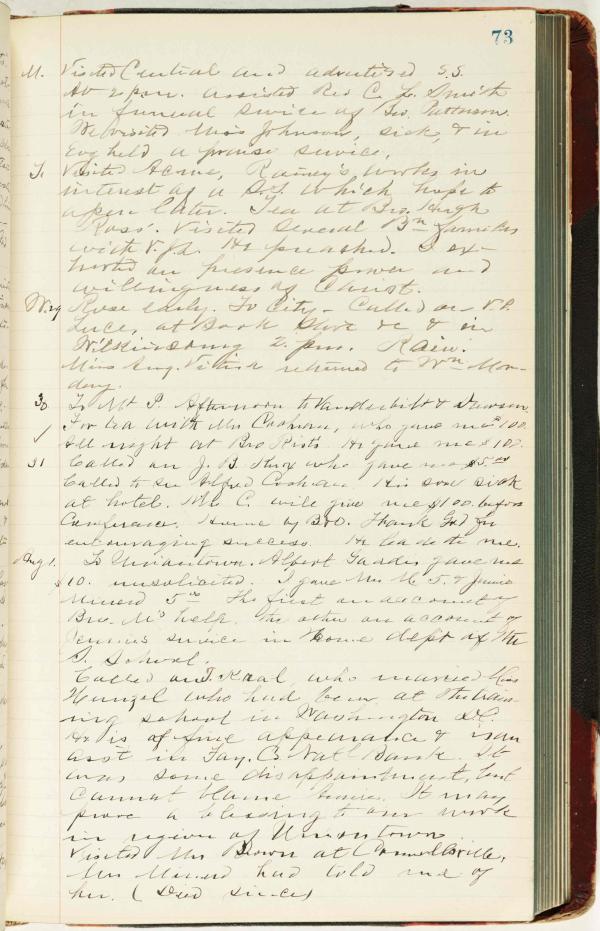 73
M. Visited Central and advertised S.S.
At 2 p.m. assisted Rev C. L. Smith
in funeral service of Geo. Patterson.
We visited Miss Johnson, sick, & in
Evg held a praise service.
T. Visited Acme, Rainey's works in
interest of a S.S. which hope to
open later. Tea at Bro. Hugh
Ross'. Visited several Bn families
with V.P.L. He preached. I ex-
horted on presence power and
willingness of Christ.
W. 29 Rose early. To City - Called on V.P.
Luce, at Book Store &c & in
Wilkinsburg 2. p.m. Rain.
Miss Aug. returned to Wn Mon-
day.
30 To Mt P. Afternoon to Vanderbilt & Dawson.
For tea with Mrs Cochran, who gave me $100.
✓ All night at Bro Rist's. He gave me $100.
31 Called on J. B. who gave me $5.00
Called to see Alfred Cochran. His son sick
at hotel. Mr. C. will give me $100. before
Conference. Home by B&O. Thank God for
encouraging success. He leadeth me.
Aug 1. To Uniontown. Albert Gaddis gave me
$10. unsolicited. I gave Mrs M. 5. & Jennie
Minerd 5.00 the first on account of
Bro. M's help. the other on account of
Jennie's service in Home dept of the
S. School.
Called on T. , who married Miss
who had been at the train-
ing school in Washington D.C.
He is of fine appearance & is an
asst in Fay. Co. Natl Bank. It
was some disappointment, but
cannot blame . It may
prove a blessing to our work
in region of Uniontown.
Visited Mrs Brown at Connellsville,
Mrs Minerd had told me of
her. (Died since)